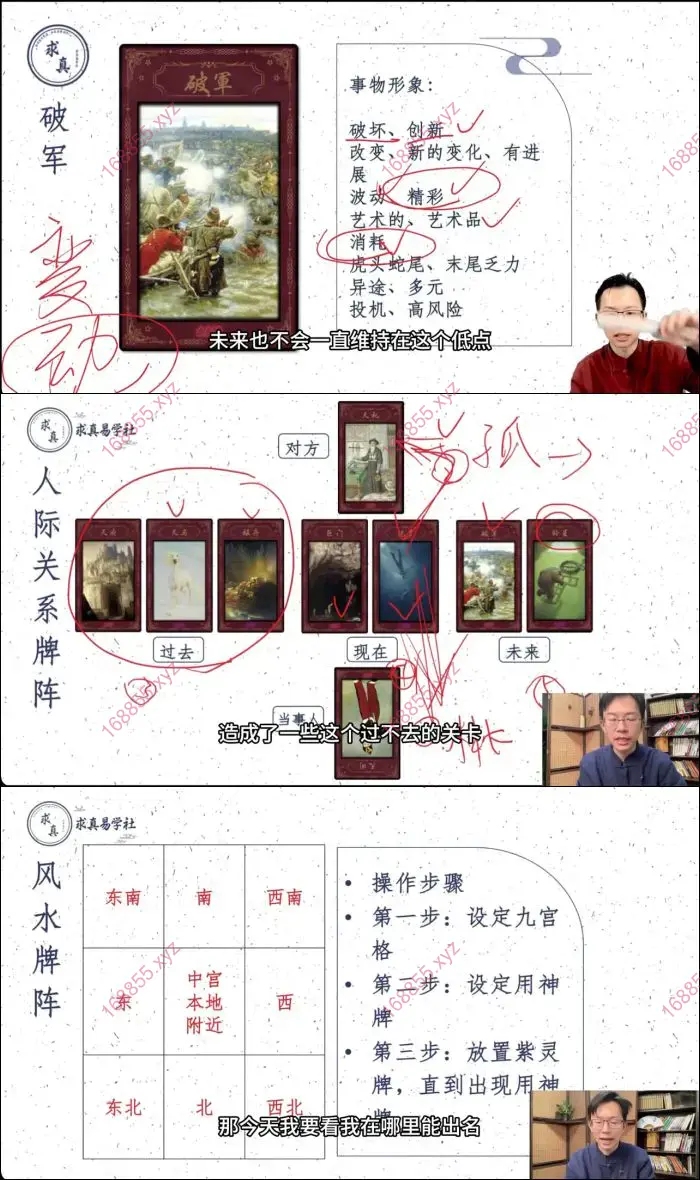 求真
破军
破軍
事物形象：
破坏、创新
改变、新的变化、有进
展
波动、精彩
艺术的、艺术品
消耗
虎头蛇尾、末尾乏力
异途、多元
投机、高风险
变动
未来也不会一直维持在这个低点
168855.xyz
168855.xyz
168855.xyz
求真
求真易学社
人际关系牌阵
对方
天机
孤
巨门
破军
铃星
过去
现在
未来
当事人
造成了一些这个过不去的关卡
168855.xyz
168855.xyz
168855.xyz
168855.xyz
求真
求真易学社
风水牌阵
东南 南 西南
东 中宫 西
本地
附近
东北 北 西北
操作步骤
第一步：设定九宫
格
第二步：设定用神
牌
第三步：放置紫灵
牌，直到出现用神
牌
那今天我要看我在哪里能出名
168855.xyz
168855.xyz